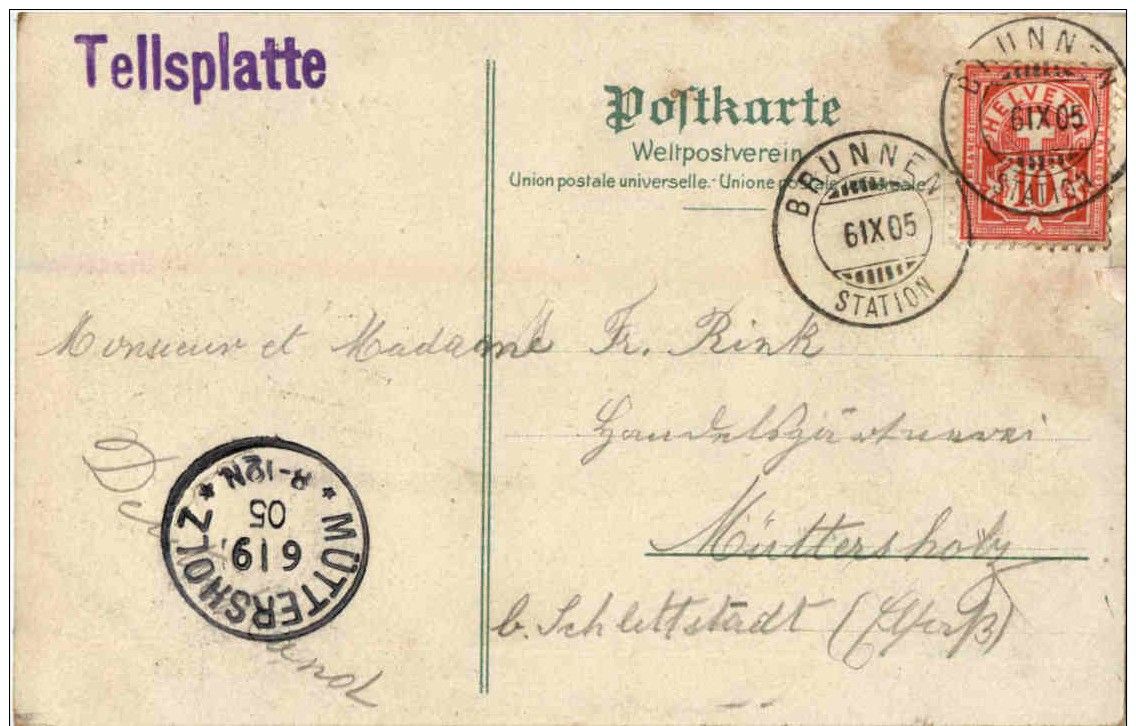 Tellsplatte
Postkarte
Weltpostverein
Union postale universelle. - Unione postale universale
BRUNNEN
6 IX 05
STATION
BRUNNEN
6 IX 05
STATION
HELVETIA
FRANCO
FRANCO
10
Monsieur et Madame Fr. Rink
Handelsgärtnerei
Müttersholz
b. Schlettstadt (Elsaß)
* MÜTTERSHOLZ *
6 19
05
8-12N